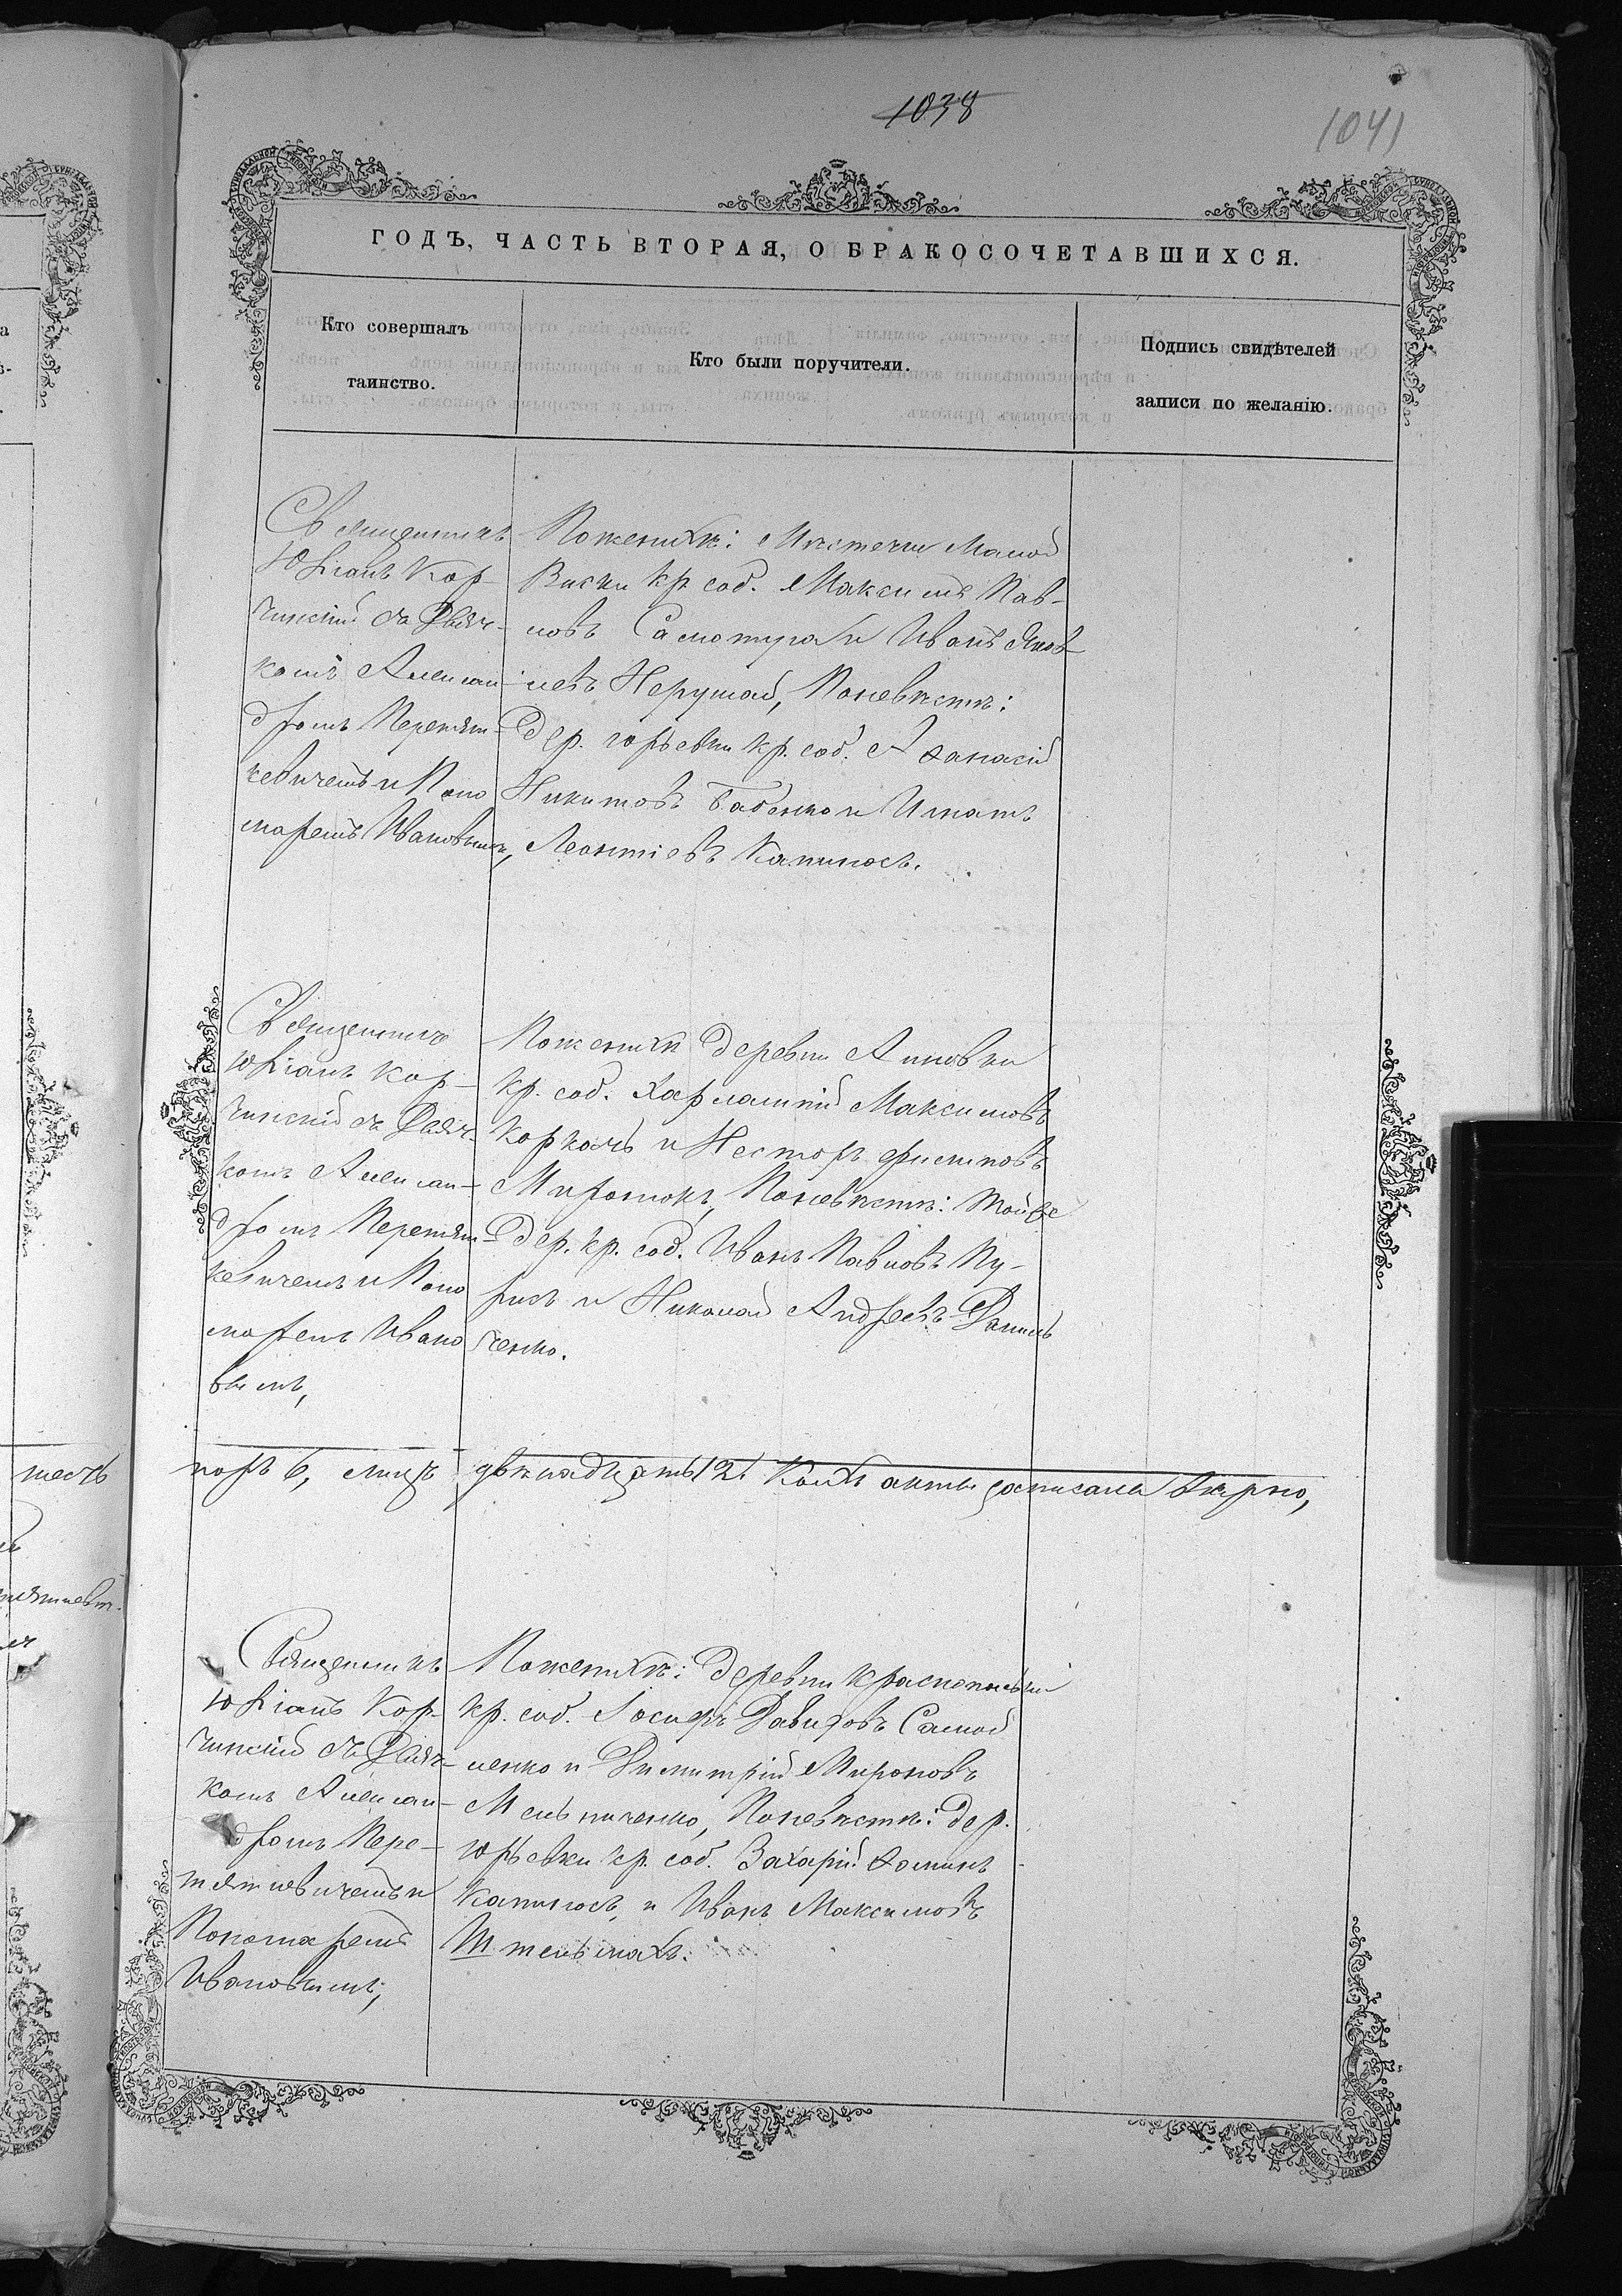 1038
1041
ГОДЪ, ЧАСТЬ ВТОРАЯ, О БРАКОСОЧЕТАВШИХСЯ.
Кто совершалъ
таинство.
Кто были поручители.
Подпись свидѣтелей
записи по желанію.
Священникъ
Юліанъ Кор-
чинскій съ Дьяч-
комъ Алексан-
дромъ Перетят-
кевичемъ и Поно
маремъ Ивановымъ,
По женихѣ: Мѣстечка Малой
Виски кр. соб. Максимъ Пав-
ловъ Самотуга и Иванъ Яков-
левъ Нерушай, По невѣстѣ:
Дер. Юрьевки кр. соб. Аѳанасій
Никитовъ Бабенко и Игнатъ
Леонтіевъ Капиносъ.
Священникъ
Юліанъ Кор-
чинскій съ Дьяч-
комъ Алексан-
дромъ Перетят-
кевичемъ и Поно
маремъ Ивано
вымъ,
По женихѣ деревни Анновки
кр. соб. Харлампій Максимовъ
и Несторъ Филиповъ
Миронюкъ, По невѣстѣ: той же
дер. кр. соб. Иванъ Павловъ Пу-
рисъ и Николай Андреевъ Даниль
ченко.
шесть
паръ 6, лицъ двѣнадцать 12 Коихъ акты записаны вѣрно,
Священникъ
Юліанъ Кор-
чинскій съ Дьяч-
комъ Алексан-
дромъ Пере-
тяткевичемъ и
Пономаремъ
Ивановымъ;
По женихѣ: деревни Краснополки
кр. соб. Іосифъ Давидовъ Самой
ленко и Димитрій Мироновъ
Мельниченко, По невѣстѣ: дер.
Юрьевки кр. соб. Захарій Ѳоминъ
Капиносъ, и Иванъ Максимовъ
Штельмахъ.